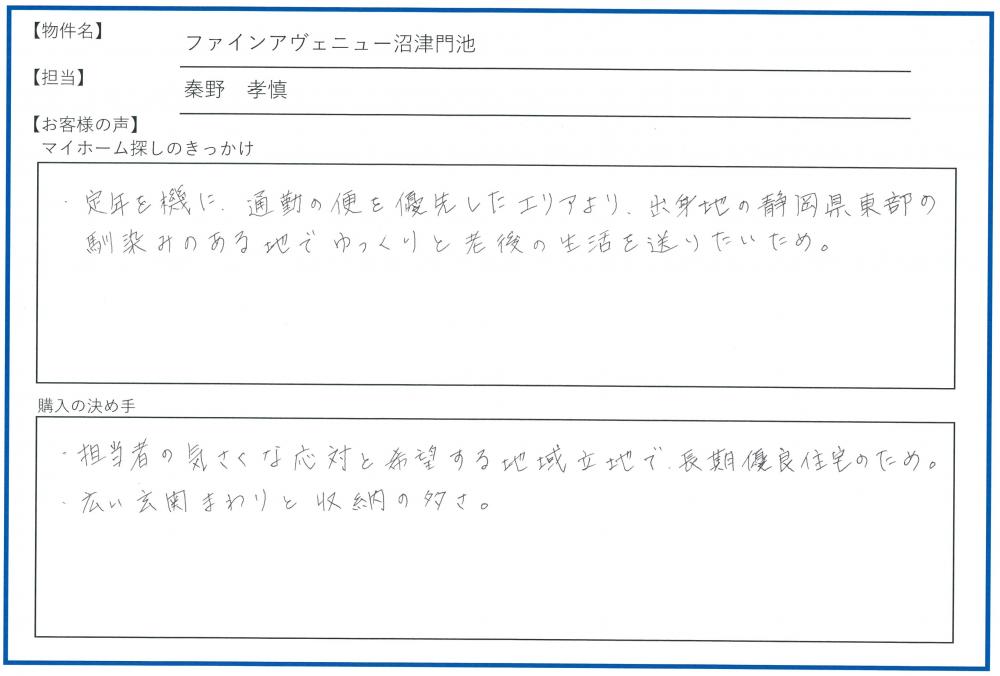 【物件名】
ファインアヴェニュー沼津門池
【担当】
秦野 孝慎
【お客様の声】
マイホーム探しのきっかけ
・定年を機に、通勤の便を優先したエリアより、出身地の静岡県東部の
馴染みのある地でゆっくりと老後の生活を送りたいため。
購入の決め手
・担当者の気さくな応対と希望する地域立地で、長期優良住宅のため。
・広い玄関まわりと収納の多さ。